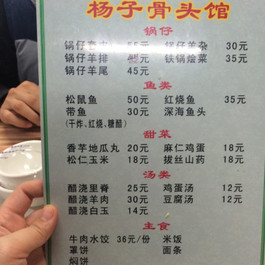 杨子骨头馆
锅仔
锅仔 羊杂 30元
锅仔羊排 铁锅烩菜 35元
锅仔羊尾 45元
鱼类
松鼠鱼 50元 红烧鱼 35元
带鱼 30元 深海鱼头
(干炸、红烧、糖醋)
甜菜
香芋地瓜丸 20元 麻仁鸡蛋 18元
松仁玉米 18元 拔丝山药 18元
汤类
醋浇里脊 25元 鸡蛋汤 12元
醋浇羊肉 30元 豆腐汤 12元
醋浇白玉 14元
主食
牛肉水饺 36元/份 米饭
罩饼 面条
焖饼